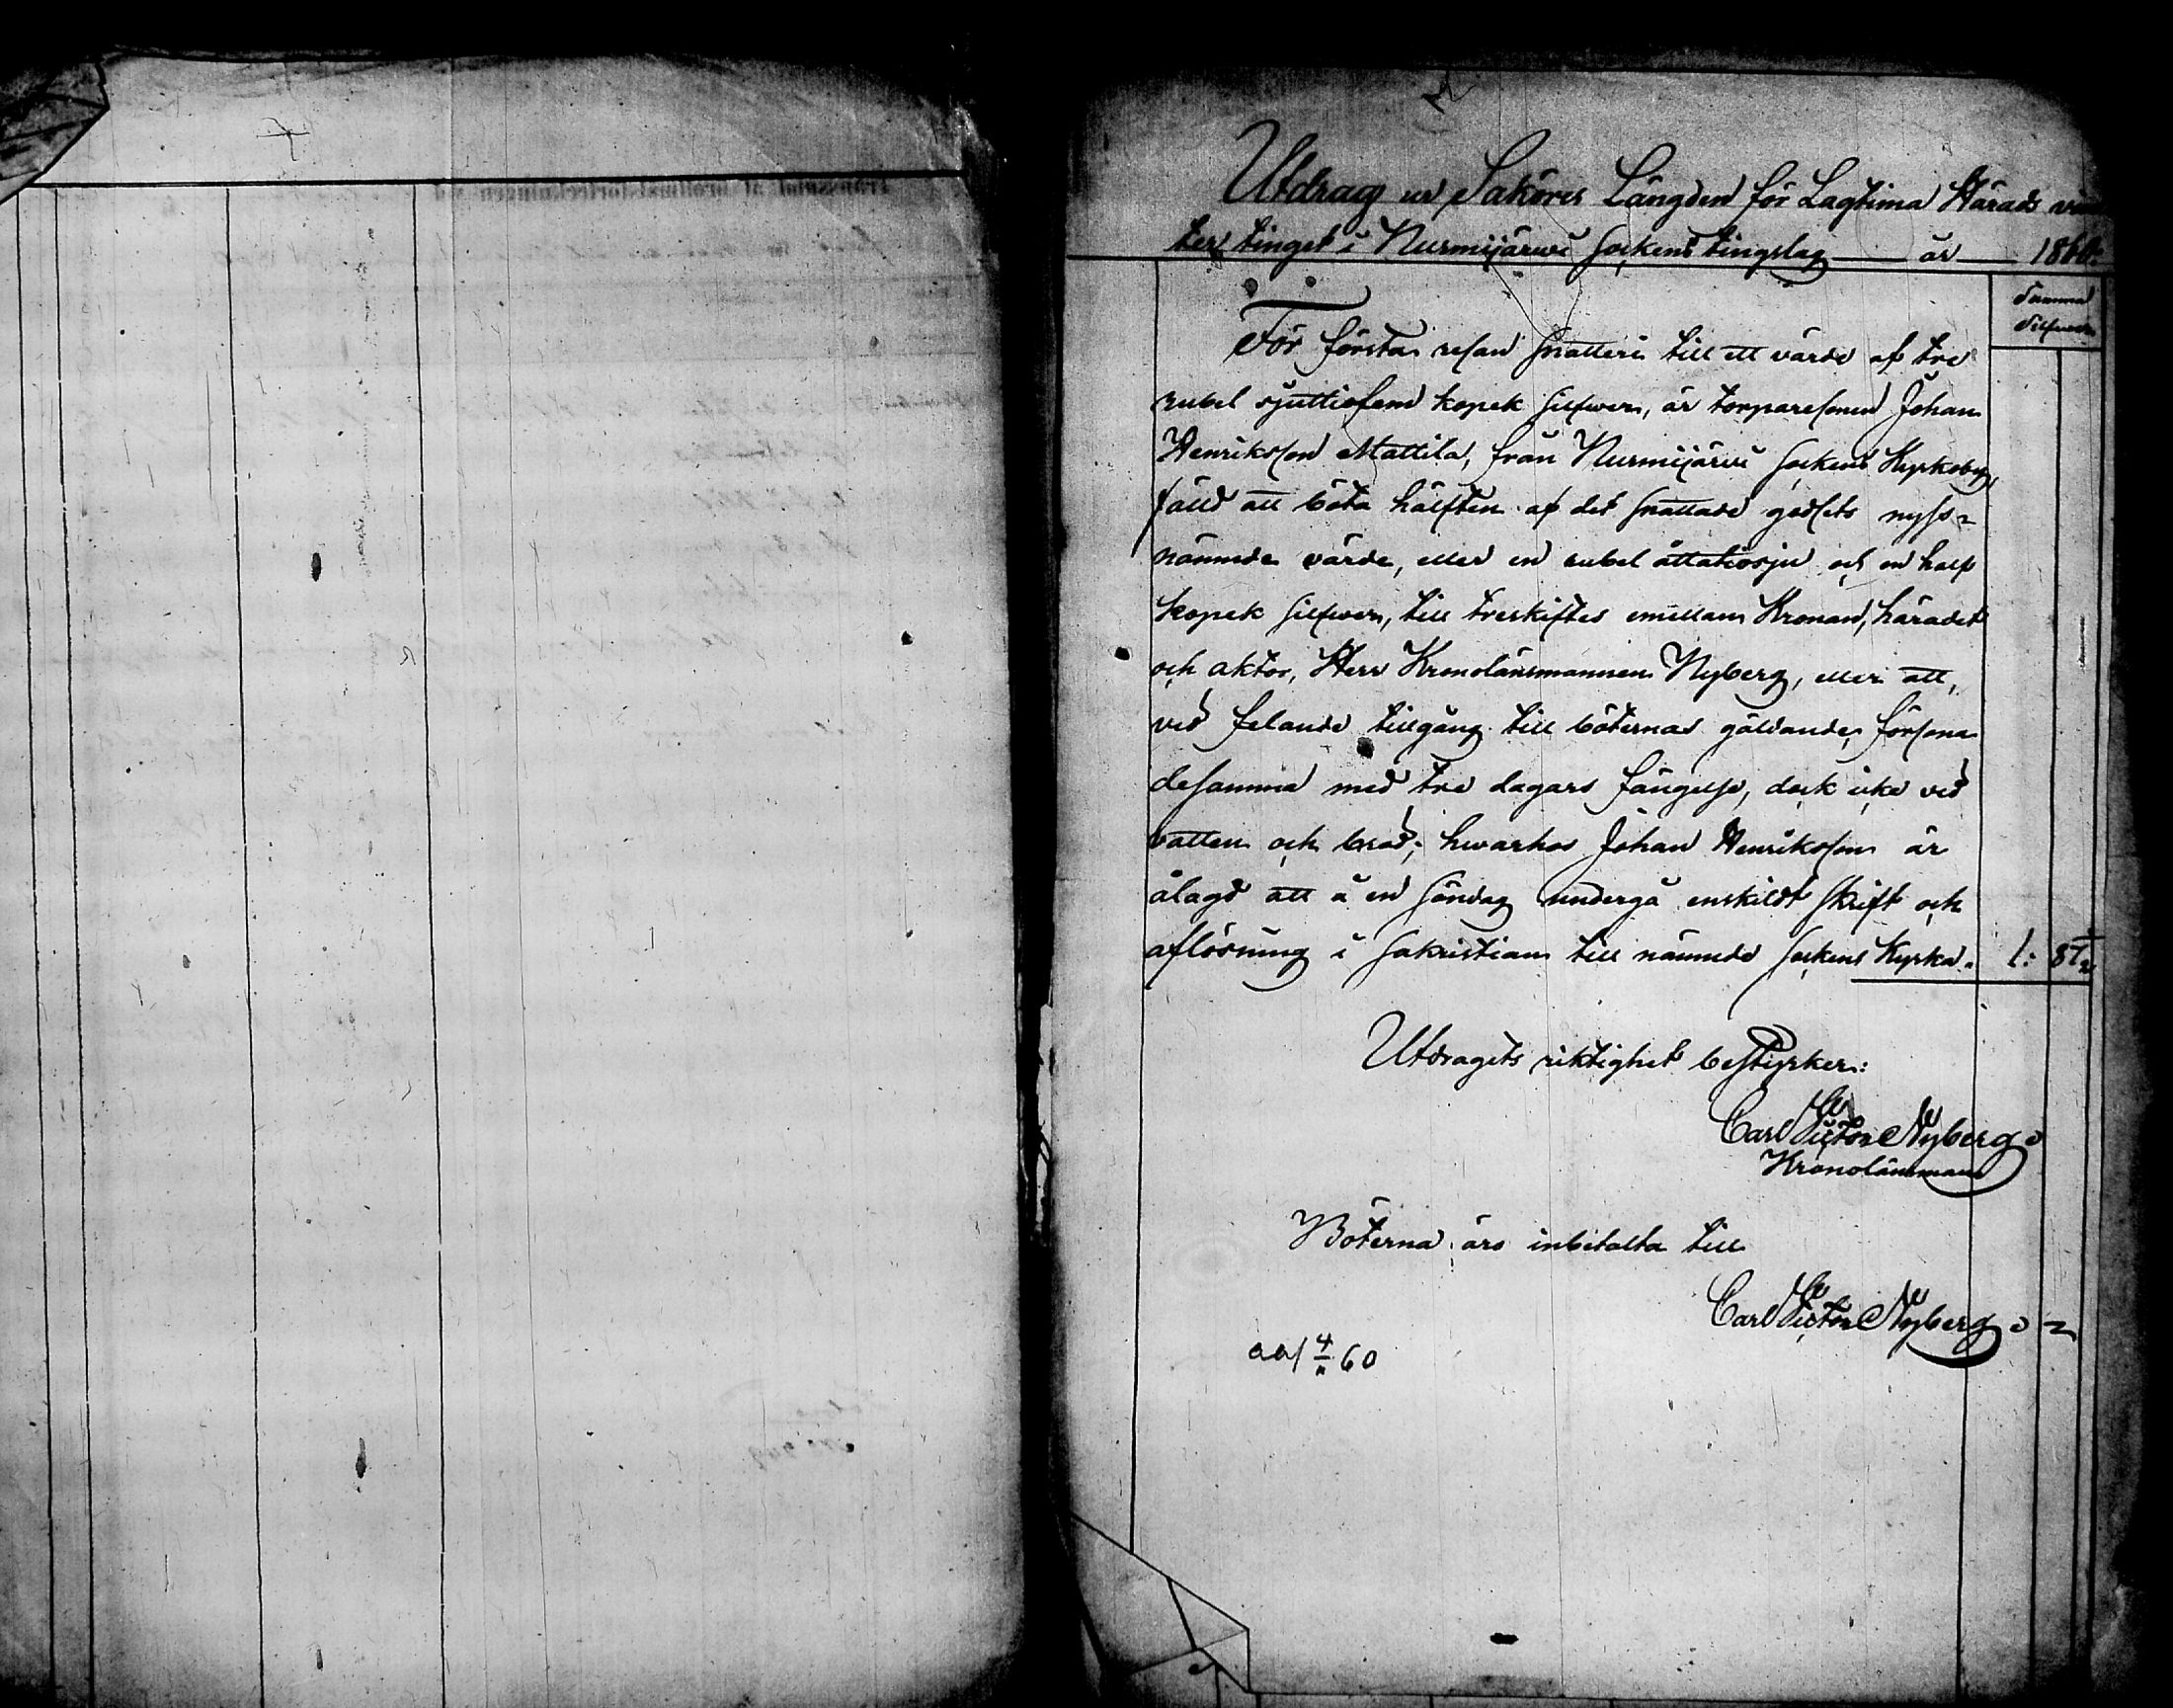 Utdrag ur Saköres Längden för Lagtima Härads vin
ter tinget i Nurmijärwi Sockens tingslag år 1860.
Summa
Silfwer
För första resan snatteri till ett värde af tre
rubel sjuttiofem kopek silfwer, är torparesonen Johan
Henriksson Mattila, från Nurmijärwi Sockens Kyrkoby,
fälld att böta hälften af det snattade godsets nyss=
nämnde värde, eller en rubel åttatiosju och en half
kopek silfwer, till treskiftes emellan Kronan, häradet
och aktor, Herr Kronolänsmannen Nyberg, eller att,
ved felande tillgång till böternas gäldande, försona
desamma med tre dagars fängelse, dock icke ved
vatten och bröd; hwarhos Johan Henriksson är
ålagd att å en Söndag undergå enskildt skrift och
aflösning i Sakristian till nämnde Sockens Kyrka. 1: 87½
Utdragets riktighet bestyrker:
Carl Victor Nyberg
Kronolänsman
Böterna äro inbetalta till
Carl Victor Nyberg
60